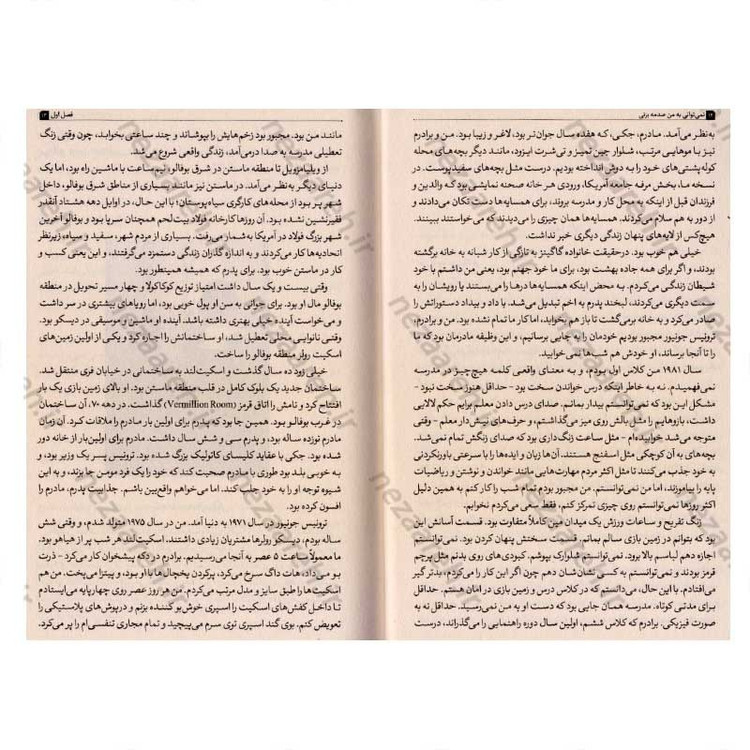 ۱۲ نمی‌توانی به من صدمه بزنی
به‌نظر می‌آمد. مادرم، جکی، که هفده سال جوان‌تر بود، لاغر و زیبا بود. من و برادرم
نیز با موهایی مرتب، شلوار جین تمیز و تی‌شرت ایزود، مانند دیگر بچه‌های محله
کوله‌پشتی‌های خود را به دوش انداخته بودیم. درست مثل بچه‌های سفیدپوست. در
نسخه ما، بخش مرفه جامعه آمریکا، ورودی هر خانه صحنه نمایشی بود که والدین و
فرزندان قبل از اینکه به محل کار و مدرسه بروند، برای همسایه‌ها دست تکان می‌دادند و
از دور به هم سلام می‌کردند. همسایه‌ها همان چیزی را می‌دیدند که می‌خواستند ببینند.
هیچ‌کس از لایه‌های پنهان زندگی دیگری خبر نداشت.
خیلی هم خوب بود. درحقیقت خانواده گاگینز به تازگی از کار شبانه به خانه برگشته
بودند، و اگر برای همه جاده بهشت بود، برای ما خود جهنم بود، یعنی من داشتم با خود
شیطان زندگی می‌کردم. به محض اینکه همسایه‌ها درها را می‌بستند یا رویشان را به
سمت دیگری می‌کردند، لبخند پدرم به اخم تبدیل می‌شد. با داد و بیداد دستوراتش را
صادر می‌کرد و به خانه برمی‌گشت تا باز هم بخوابد، اما کار ما تمام نشده بود. من و برادرم،
ترونیس جونیور مجبور بودیم خودمان را به جایی برسانیم، و این وظیفه مادرمان بود که ما
را تا آنجا برساند، او خودش هم شب‌ها نمی‌خوابید.
سال ۱۹۸۱ من کلاس اول بودم، و به معنای واقعی کلمه هیچ‌چیز در مدرسه
نمی‌فهمیدم. نه به خاطر اینکه درس خواندن سخت بود - حداقل هنوز سخت نبود -
مشکل این بود که نمی‌توانستم بیدار بمانم. صدای درس دادن معلم برایم حکم لالایی
داشت، بازوهایم را مثل بالش روی میز می‌گذاشتم، و حرف‌های نیش‌دار معلم - وقتی
متوجه می‌شد خوابیده‌ام - مثل ساعت زنگ‌داری بود که صدای زنگش تمام نمی‌شد.
بچه‌های به آن کوچکی مثل اسفنج هستند. آن‌ها زبان و ایده‌ها را با سرعتی باورنکردنی
به خود جذب می‌کنند تا مثل اکثر مردم مهارت‌هایی مانند خواندن و نوشتن و ریاضیات
پایه را بیاموزند، اما من نمی‌توانستم. من مجبور بودم تمام شب را کار کنم به همین دلیل
اکثر روزها نمی‌توانستم روی چیزی تمرکز کنم، فقط سعی می‌کردم نخوابم.
زنگ تفریح و ساعات ورزش یک میدان مین کاملاً متفاوت بود. قسمت آسانش این
بود که بتوانم در زمین بازی سالم بمانم. قسمت سختش پنهان کردن بود. نمی‌توانستم
اجازه دهم لباسم بالا برود. نمی‌توانستم شلوارک بپوشم. کبودی‌های روی بدنم مثل پرچم
قرمز بودند و نمی‌توانستم به کسی نشان‌شان دهم چون اگر این کار را می‌کردم، بدتر گیر
می‌افتادم. با این حال، می‌دانستم که در کلاس درس و زمین بازی در امان هستم. حداقل
برای مدتی کوتاه. مدرسه همان جایی بود که دست او به من نمی‌رسید. حداقل نه به
صورت فیزیکی. برادرم که کلاس ششم، اولین سال دوره راهنمایی را می‌گذراند، درست
فصل اول ۱۳
مانند من بود. مجبور بود زخم‌هایش را بپوشاند و چند ساعتی بخوابد، چون وقتی زنگ
تعطیلی مدرسه به صدا درمی‌آمد، زندگی واقعی شروع می‌شد.
از ویلیامزویل تا منطقه ماستن در شرق بوفالو، نیم ساعت با ماشین راه بود، اما یک
دنیای دیگر به نظر می‌آمد. در ماستن نیز مانند بسیاری از مناطق شرق بوفالو، داخل
شهر پر بود از محله‌های کارگری سیاه‌پوستان؛ با این حال، در اوایل دهه هشتاد آنقدر
فقیرنشین نشده بود. آن روزها کارخانه فولاد بیت‌لحم همچنان سرپا بود و بوفالو آخرین
شهر بزرگ فولاد در آمریکا به‌شمار می‌رفت. بسیاری از مردم شهر، سفید و سیاه، زیرنظر
اتحادیه‌ها کار می‌کردند و به اندازه گذران زندگی دستمزد می‌گرفتند، و این یعنی کسب و
کار در ماستن خوب بود. برای پدرم که همیشه همینطور بود.
وقتی بیست و یک سال داشت امتیاز توزیع کوکاکولا و چهار مسیر تحویل در منطقه
بوفالو مال او بود. برای جوانی به سن او پول خوبی بود، اما رویاهای بیشتری در سر داشت
و می‌خواست آینده خیلی بهتری داشته باشد. آینده او ماشین و موسیقی در دیسکو بود.
وقتی نانوایی محلی تعطیل شد، او ساختمانش را اجاره کرد و یکی از اولین زمین‌های
اسکیت رولر منطقه بوفالو را ساخت.
خیلی زود ده سال گذشت و اسکیت‌لند به ساختمانی در خیابان فری منتقل شد.
ساختمان جدید یک بلوک کامل در قلب منطقه ماستن بود. او بالای زمین بازی یک بار
افتتاح کرد و نامش را اتاق قرمز (Vermillion Room) گذاشت. در دهه ۷۰، آن ساختمان
در غرب بوفالو بود. همین جا بود که پدرم برای اولین بار مادرم را ملاقات کرد. آن زمان
مادرم نوزده ساله بود، و پدرم سی و شش سال داشت. مادرم برای اولین‌بار از خانه دور
شده بود. جکی با عقاید کلیسای کاتولیک بزرگ شده بود. ترونیس پسر یک وزیر بود، و
به خوبی بلد بود طوری با مادرم صحبت کند که خود را یک فرد مومن جا بزند، و به این
شیوه توجه او را به خود جلب کند. اما می‌خواهم واقع‌بین باشم. جذابیت پدرم، مادرم را
افسون کرده بود.
ترونیس جونیور در سال ۱۹۷۱ به دنیا آمد. من در سال ۱۹۷۵ متولد شدم، و وقتی شش
ساله بودم، دیسکو رولرها مشتریان زیادی داشتند. اسکیت‌لند هر شب پر از هیاهو بود.
ما معمولاً ساعت ۵ عصر به آنجا می‌رسیدیم. برادرم در دکه پیشخوان کار می‌کرد - ذرت
بو می‌داد، هات داگ سرخ می‌کرد، پرکردن یخچال ها با او بود، و پیتزا می‌پخت. من هم
اسکیت‌ها را طبق سایز و مدل مرتب می‌کردم. من هر روز عصر روی چهارپایه می‌ایستادم
تا داخل کفش‌های اسکیت را اسپری خوش بو کننده بزنم و درپوش‌های پلاستیکی را
تعویض کنم. بوی گند اسپری توی سرم می‌پیچید و تمام مجاری تنفسی‌ام را پر می‌کرد.